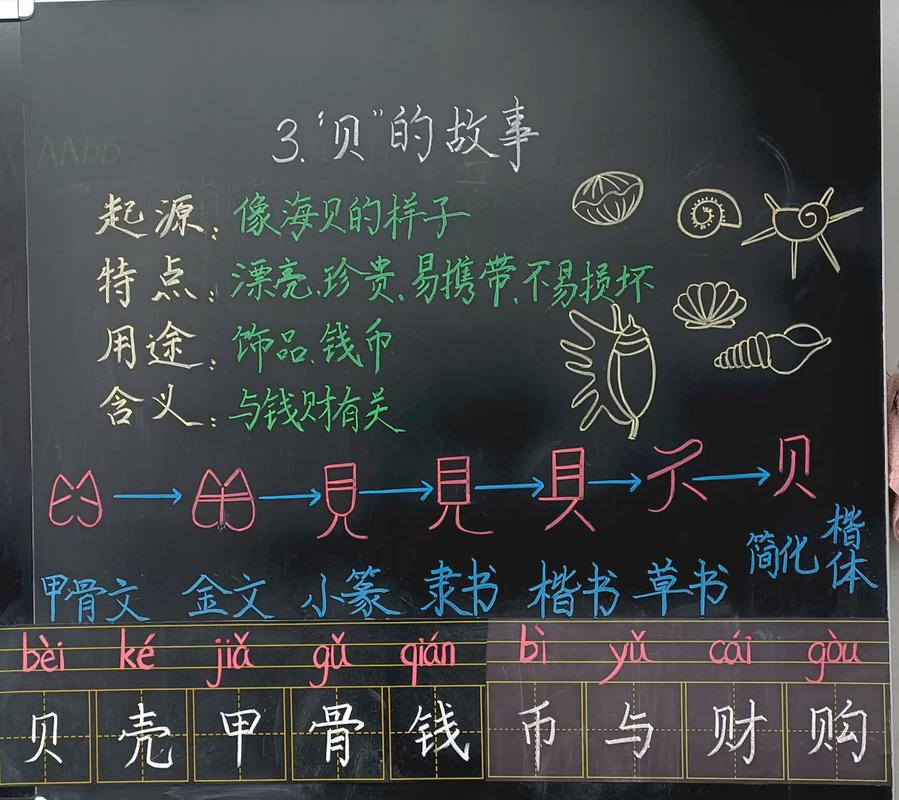 3.“贝”的故事
AABB
起源：像海贝的样子
特点：漂亮、珍贵、易携带、不易损坏
用途：饰品、钱币
含义：与钱财有关
貝 貝 贝
甲骨文 金文 小篆 隶书 楷书 草书 简化 楷体
bèi ké jiǎ gǔ qián bì yǔ cái gòu
贝 壳 甲 骨 钱 币 与 财 购